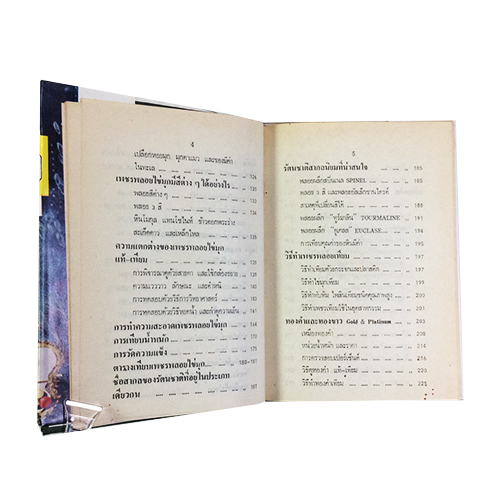 4
เปลือกหอยมุก มุกตาแมว และของมีค่า
ในทะเล 134
เพชรพลอยไข่มุกมีสีต่าง ๆ ได้อย่างไร 136
พลอยสีต่างๆ 136
พลอย ๓ สี 138
หินโมกุล แทนไซไนท์ ข้าวตอกพระร่วง
สะเก็ดดาว และเหล็กไหล
ความแตกต่างของเพชรพลอยไข่มุก
แท้-เทียม
การพิจารณาดูด้วยสายตา และใช้กล้องขยาย
ความแวววาว ลักษณะ และตำหนิ
การทดสอบด้วยวิธีการวิทยาศาสตร์
การทดสอบด้วยวิธีหาค่า และกำหนดความเย็น
การทำความสะอาดเพชรพลอยไข่มุก
การเทียบน้ำหนัก
การวัดความแข็ง
ตารางเทียบเพชรพลอยไข่มุก 180-181
ชื่อสากลของรัตนชาติที่อยู่ในประเภท
เดียวกัน 181
5
รัตนชาติสากลนิยมที่น่าสนใจ 185
พลอยเหล็กสปิเนล SPINEL
พลอย ๓ สี และพลอยอเล็กซานไดรท์
สาเหตุที่เปลี่ยนสีได้
พลอยเหล็ก "ทูร์มาลีน" TOURMALINE
พลอยเหล็ก "ยูเคลส" EUCLASE
การเทียบคุณค่าของหินมีค่า 195
วิธีทำเพชรพลอยเทียม 197
วิธีทำเทียมด้วยกระจกและปลาสติค 197
วิธีทำไข่มุกเทียม 198
วิธีทำทับทิม ไพลินเทียมชนิดคุณภาพสูง 200
วิธีทำเพชรเทียมใช้ในอุตสาหกรรม 203
ทองคำและทองขาว Gold & Platinum 205
เหมืองทองคำ 205
หน่วยน้ำหนัก และราคา 214
การตรวจสอบเปอร์เซ็นต์ 216
วิธีดูทองคำ แท้-เทียม 218
วิธีทำทองคำเทียม 221